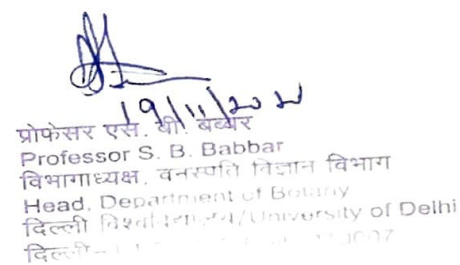 19/11/20
प्रोफेसर एस. बी. बब्बर
Professor S. B. Babbar
विभागाध्यक्ष, वनस्पति विज्ञान विभाग
Head, Department of Botany
दिल्ली विश्वविद्यालय/University of Delhi
दिल्ली